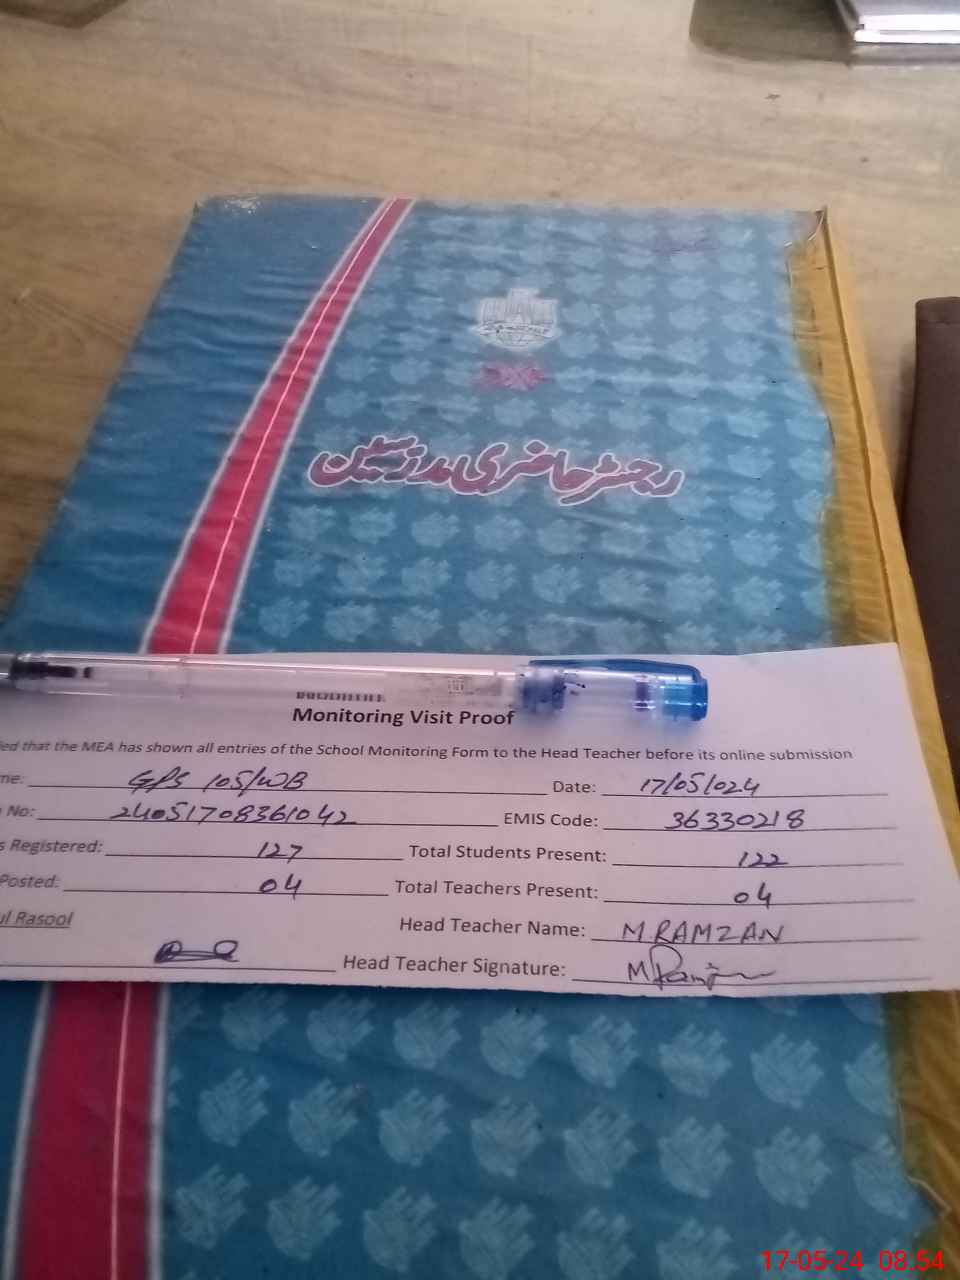 رجسٹر حاضری مدرسین
Monitoring Visit Proof
ed that the MEA has shown all entries of the School Monitoring Form to the Head Teacher before its online submission
me: GPS 105/WB Date: 17/05/024
No: 24051708361042 EMIS Code: 36330218
s Registered: 127 Total Students Present: 122
Posted: 04 Total Teachers Present: 04
ul Rasool Head Teacher Name: M.RAMZAN
Head Teacher Signature: M Ramzan
17-05-24 08:54